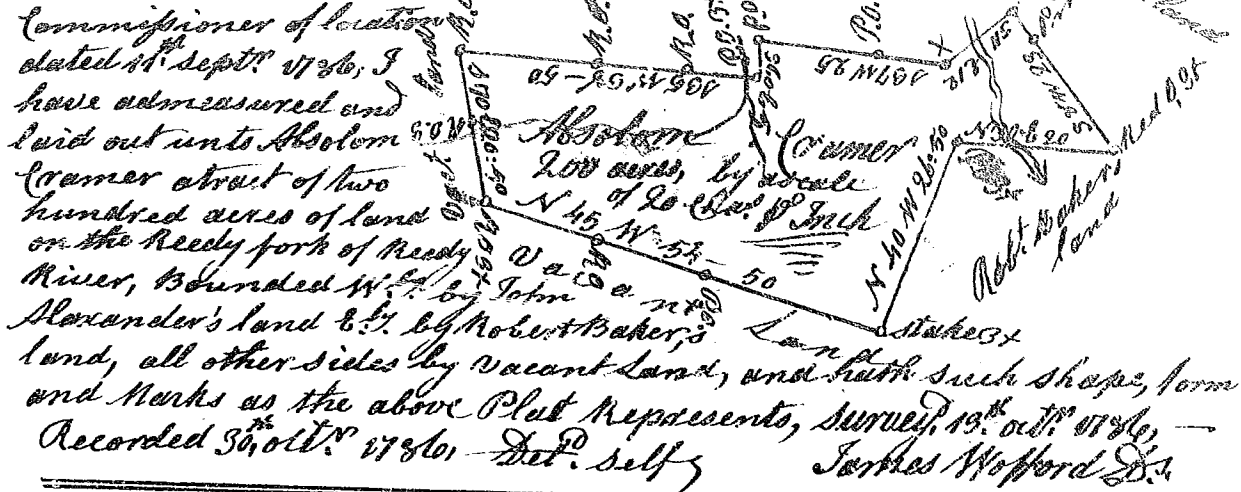 Commissioner of location
dated 11th Septr. 1786, I
have admeasured and
laid out unto Absolom
Cramer a tract of two
hundred acres of land
on the Reedy fork of Reedy
River, Bounded W.ly by John
Alaxander's land E.ly by Robert Baker,s
land, all other sides by Vacant Land, and hath such shape, form
and Marks as the above Plat Represents, Survey.d 13th octr. 1786, —
Recorded 30,th octr. 1786, Del.d Self
James Wofford D.S.
Absolom Cramer
200 acres, by a scale
of 20 Chas. pr Inch
N 45 W 54-50
N 40 W 26:50
Vacant Land
stake 3x
Robt. Baker,s
land